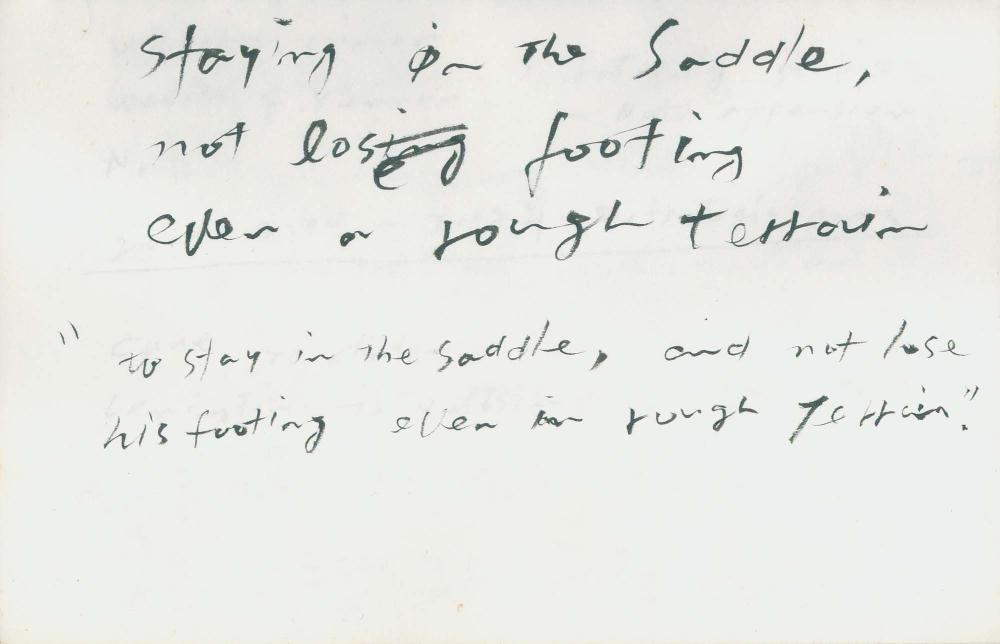 staying in the saddle,
not losing footing
even on rough terrain
"to stay in the saddle, and not lose
his footing even in rough terrain."